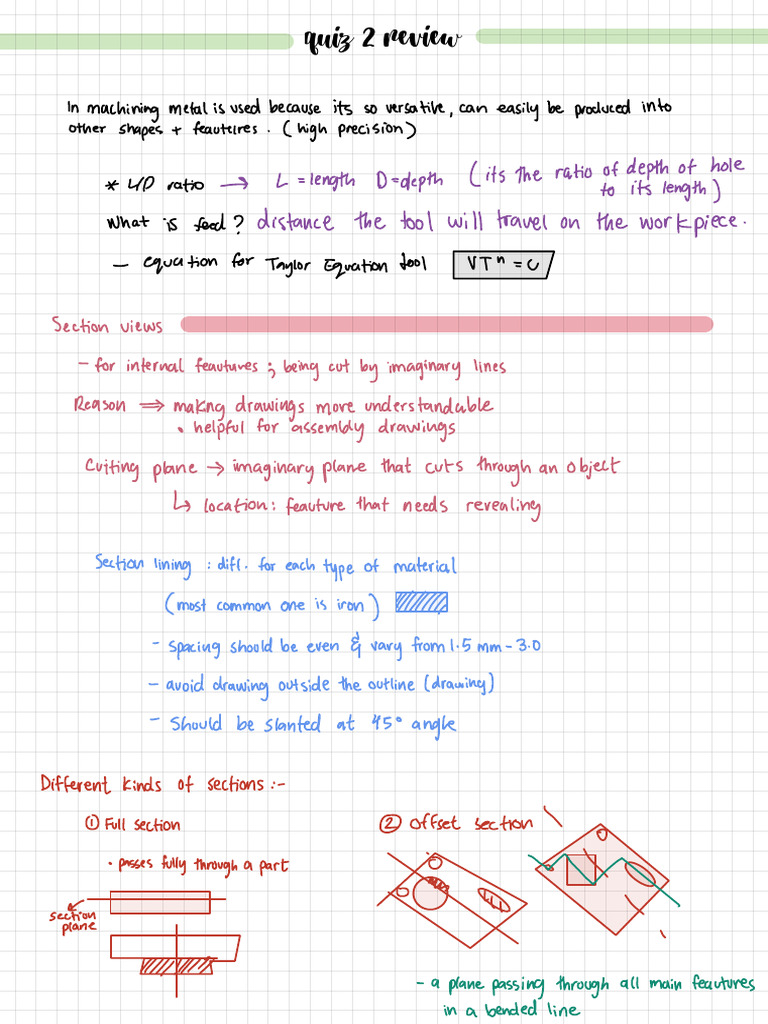 quiz 2 review
In machining metal is used because its so versatile, can easily be produced into
other shapes + feautures. (high precision)
* L/D ratio → L = length D = depth (its the ratio of depth of hole
to its length)
What is feed? distance the tool will travel on the workpiece.
– equation for Taylor Equation tool VTⁿ = C
Section views
- for internal feautures ; being cut by imaginary lines
Reason ⇒ making drawings more understandable
• helpful for assembly drawings
Cutting plane → imaginary plane that cuts through an object
↳ location: feauture that needs revealing
Section lining : diff. for each type of material
(most common one is iron)
- spacing should be even & vary from 1.5 mm - 3.0
- avoid drawing outside the outline (drawing)
- Should be slanted at 45° angle
Different kinds of sections :-
① Full section
• passes fully through a part
section
plane
② Offset section
- a plane passing through all main feautures
in a bended line